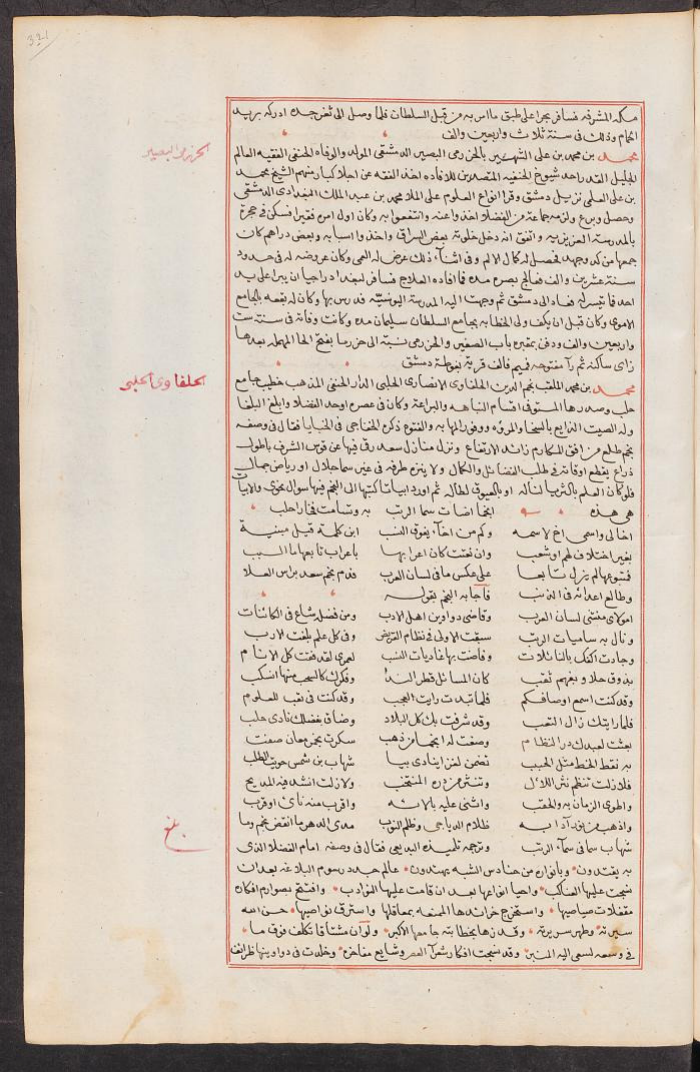 321
مكة المشرفه فسافر بحرا على طبق ما امر به من قبل السلطان فلما وصل الى ثغر جده ادركه بريد
الحمام وذلك في سنة ثلاث واربعين والف
الحزرمى البصير
محمد بن محمد بن على الشهير بالحزرمى البصير الدمشقى المولد والوفاه الحنفى الفقيه العالم
الجليل القدر احد شيوخ الحنفيه المتصدرين للافاده اخذ الفقه عن اجلا كبار منهم الشيخ محمد
بن على العلمى نزيل دمشق وقرا انواع العلوم على الملا محمد بن عبد الملك البغدادى الدمشقى
وحصل وبرع ولزمه جماعة من الفضلا اخذوا عنه وانتفعوا به وكان اول امره فقيرا فسكن في حجرة
بالمدرسة العزيزيه واتفق انه دخل خلوته بعض السراق واخذوا اسبابه وبعض دراهم كان
جمعها من كد وجهد فحصل له كمال الالم وفى اثناء ذلك عرض له العمى وكان عروضه له فى حدود
سنة عشرين والف فعالج بصره مدة فما افاده العلاج فسافر لبغداد راجيا ان يبرا على يد
احد فما تيسر له فعاد الى دمشق ثم وجهت اليه المدرسة اليونسية فدرس بها وكان له بقعه بالجامع
الاموى وكان قبل ان يكف ولى الخطابه بجامع السلطان سليمان مده وكانت وفاته فى سنة ست
واربعين والف ودفن بمقبرة باب الصغير والحزرمى نسبة الى حزرما بفتح الحا المهمله بعدها
زاى ساكنه ثم رآ مفتوحه فميم فالف قرية بغوطة دمشق
الحلفاوى الحلبى
محمد بن محمد الملقب نجم الدين الحلفاوى الانصارى الحلبى الدار الحنفى المذهب خطيب جامع
حلب وصدرها المستوفى اقسام النباهه والبراعة وكان فى عصره اوحد الفضلا وابلغ البلغا
وله الصيت الذايع بالسخا والمروه ووفور المهابه والفتوه ذكره الخفاجى فى الخبايا فقال فى وصفه
نجم طلع من افق المكارم زائد الارتفاع ونزل منازل سعد رقى فيها عن قوس الشرف باطول
ذراع يقطع اوقاته فى طلب الفضائل والكمال ولا ينزه طرفه فى غير سما جلال او رياض جمال
فلو كان العلم بالثريا لناله او بالعيوق لطاله ثم اورد ابياتا كتبها الى النجم فيها سوال نحوى والابيات
هى هذه انجما اضات سما الرتب به وتسامت فخارا حلب
اخا لى واسمى اخ لاسمه وكم من اخآء يفوق النسب ابن كلمة قيل مبنية
بغير اختلاف لهم او شعب وان نعتت كان اعرابها باعراب تابعها ما السبب
فمتبوعها لم يزل تابعا على عكس ما فى لسان العرب فدم نجم سعد براس العلا
وطالع اعدائه فى الذنب فاجابه النجم بقوله
امولاى منشى لسان العرب وقاضى دواوين اهل الادب ومن فضله شاع فى الكائنات
ونال به ساميات الرتب سبقت الاولى فى نظام القريض وفى كل علم بلغت الارب
وجادت اكفك بالنائلات وفاضت بها غاديات السحب لعمرى لقد فقت كل الانام
بذوق حلا وبفهم ثقب كان المسائل قطر الندا وفكرك كالسحب منها انسكب
وقد كنت اسمع اوصافكم فلما تبدت رايت العجب وقد كنت فى تعب للعلوم
فلما رايتك زال التعب وقد شرفت بك كل البلاد وضاق بفضلك نادى حلب
بعثت لعبدك در النظام وصغت له انجما من ذهب سكرت بخمر معان صفت
به نقط الخط مثل الحبب تضمن لغزا ينادى بيا شهاب بن شمس حويت الطلب
فلازلت تنظم نثر اللال وتنثر من دره المنتخب ولا زلت انشد فيه المديح
واطوى الزمان به والحقب واثنى عليه بالائه واقرب منه نائ او قرب
واذهب من نور آدابه ظلام الدياجى وظلم النوب مدى الدهر ما انقض نجم وما
شهاب سما فى سمآء الرتب وترجمه تلميذه البديعى فقال فى وصفه امام الفضلا الذى
بلغ
به يقتدون وبانواره من حنادس الشبه يهتدون عالم جدد رسوم البلاغه بعد ان
نسجت عليها العناكب واحيا انواعها بعد ان قامت عليها النوادب وافتتح بصوارم افكاره
مقفلات صياصيها واستخرج خرائدها الممنعه بمعاقلها واسترق نواصيها حسن الله
سيرته وطهر سريرته وقد زها بخطابته جامعها الاكبر ولو ان مشتاقا تكلف فوق ما
فى وسعه لسعى اليه المنبر وقد نسجت افكار شعرآ العصر وشايع مفاخره وخلدت فى دواوينها ظرائف